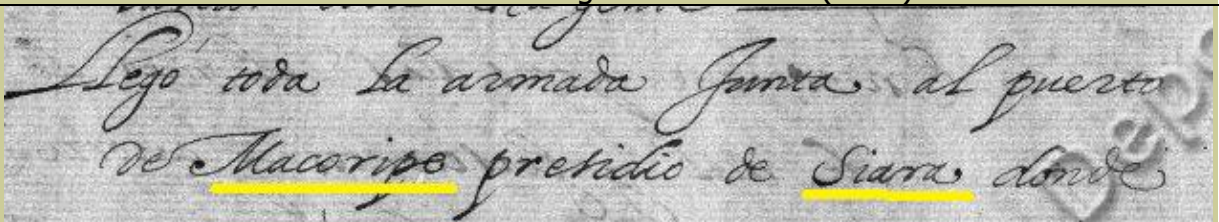 Llegó toda la armada Junta al puerto
de Macoripe presidio de Siara donde